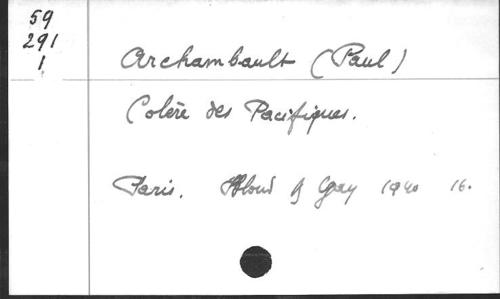 59
291
1
Archambault (Paul)
Colère des Pacifiques.
Paris. Bloud & Gay 1940 16.